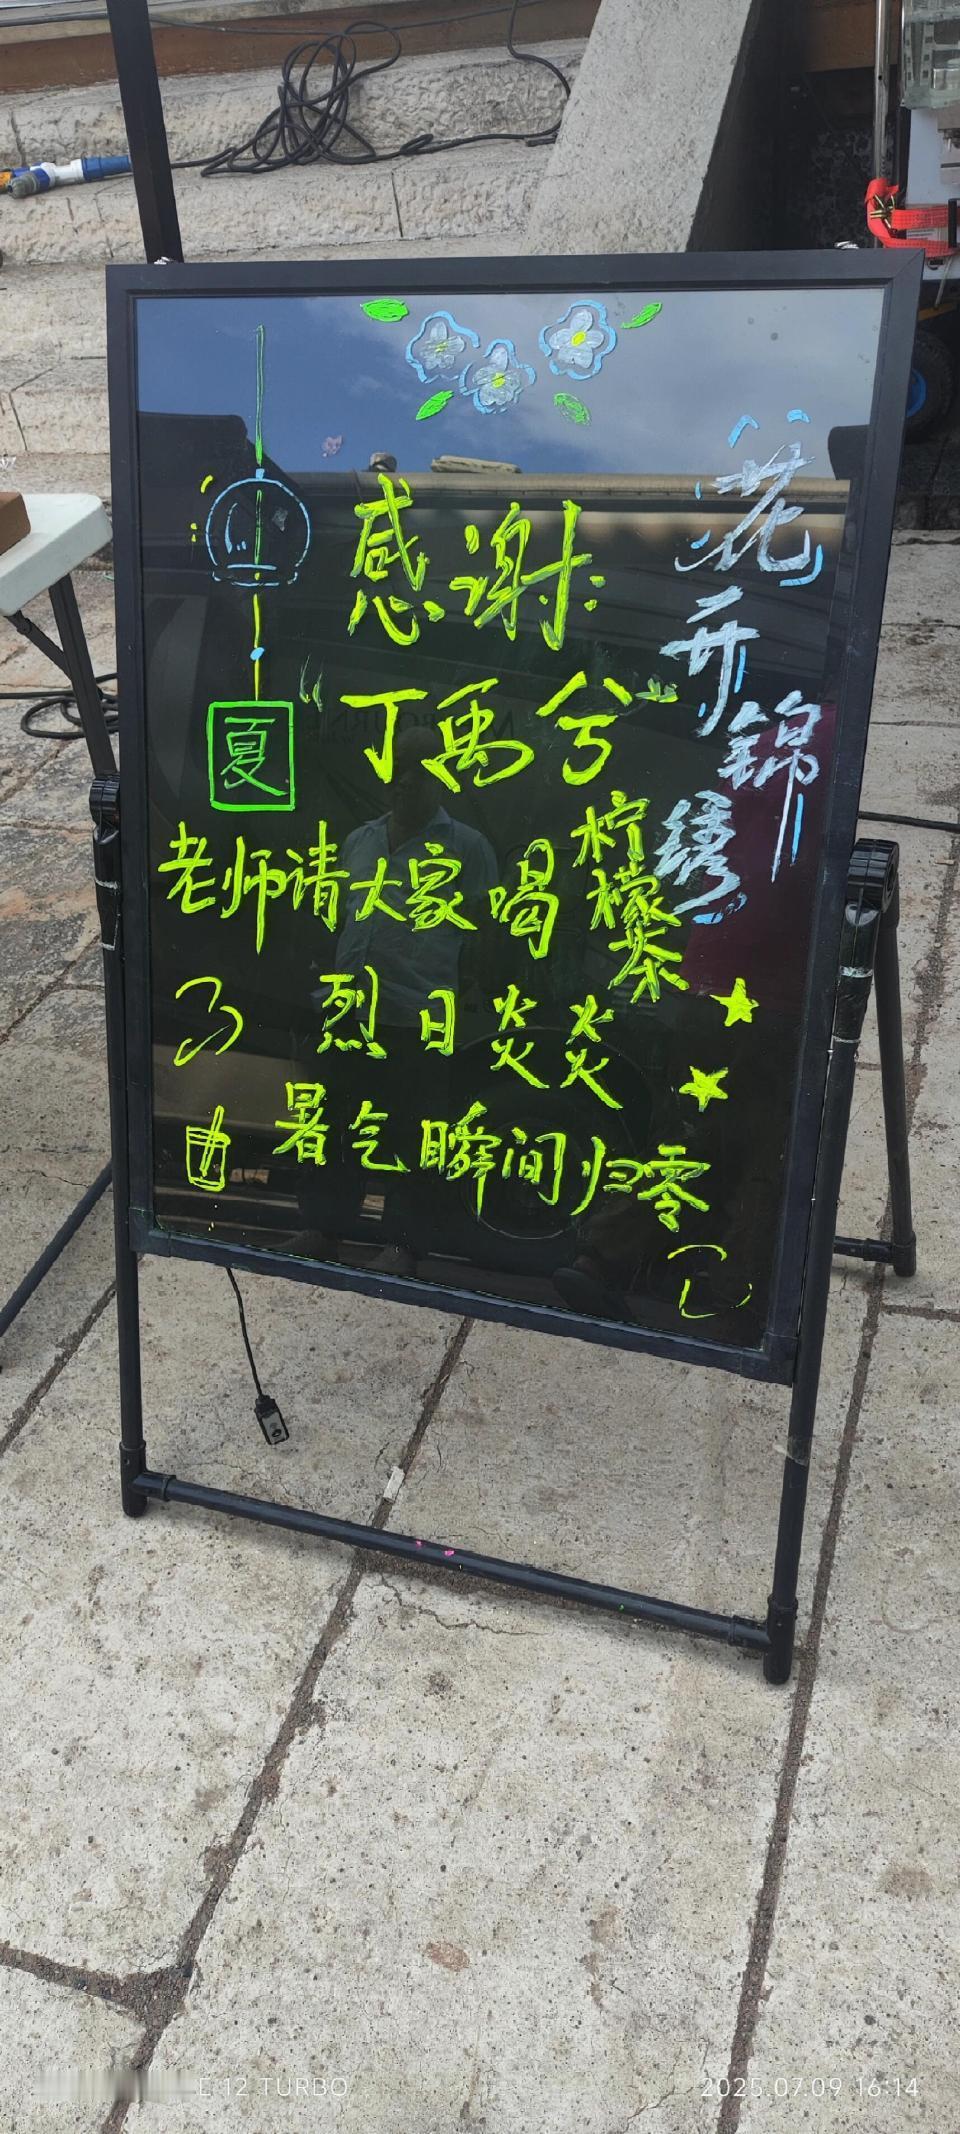 感谢:
"丁禹兮"
老师请大家喝柠檬茶
烈日炎炎
暑气瞬间归零
夏
花开锦绣
E 12 TURBO
2025.07.09 16:14